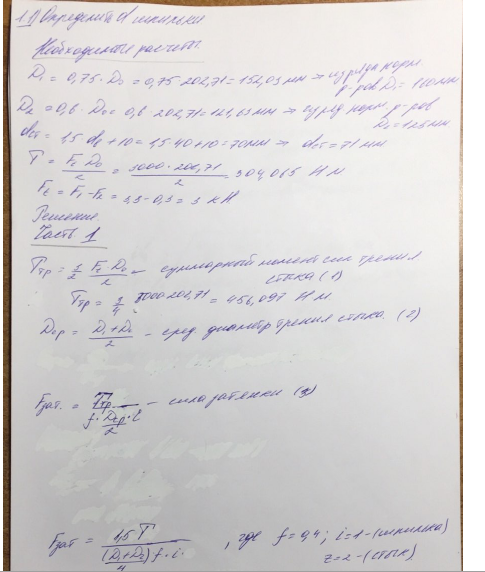 1.1) Определить d шпильки
Необходимые расчеты.
D₁ = 0,75 · D₀ = 0,75 · 202,71 = 152,03 мм → из ряда норм.
р-ров D₁ = 160 мм.
D₂ = 0,6 · D₀ = 0,6 · 202,71 = 121,63 мм → из ряд норм. р-ров
D₂ = 125 мм.
dст = 1,5 · dв + 10 = 1,5 · 40 + 10 = 70 мм → dст = 71 мм
T = Ft · D₀ / 2 = 3000 · 202,71 / 2 = 304,065 Н м
Ft = F₁ - F₂ = 3,3 - 0,3 = 3 кН
Решение.
Часть 1
Tтр = Ft D₀ / 2 – суммарный момент сил трения
стыка (1)
Tтр = 3000 202,71 / 4 = 456,097 Н м
Dср = D₁ + D₂ / 2 – сред диаметр трения стыка. (2)
Fзат. = Tтр / f · Dср / 2 · i – сила затяжки (3)
Fзат = 1,5 T / (D₁ + D₂) / 4 f · i · , где f = 0,4; i = 1 - (шпилька)
z = 2 - (стык)